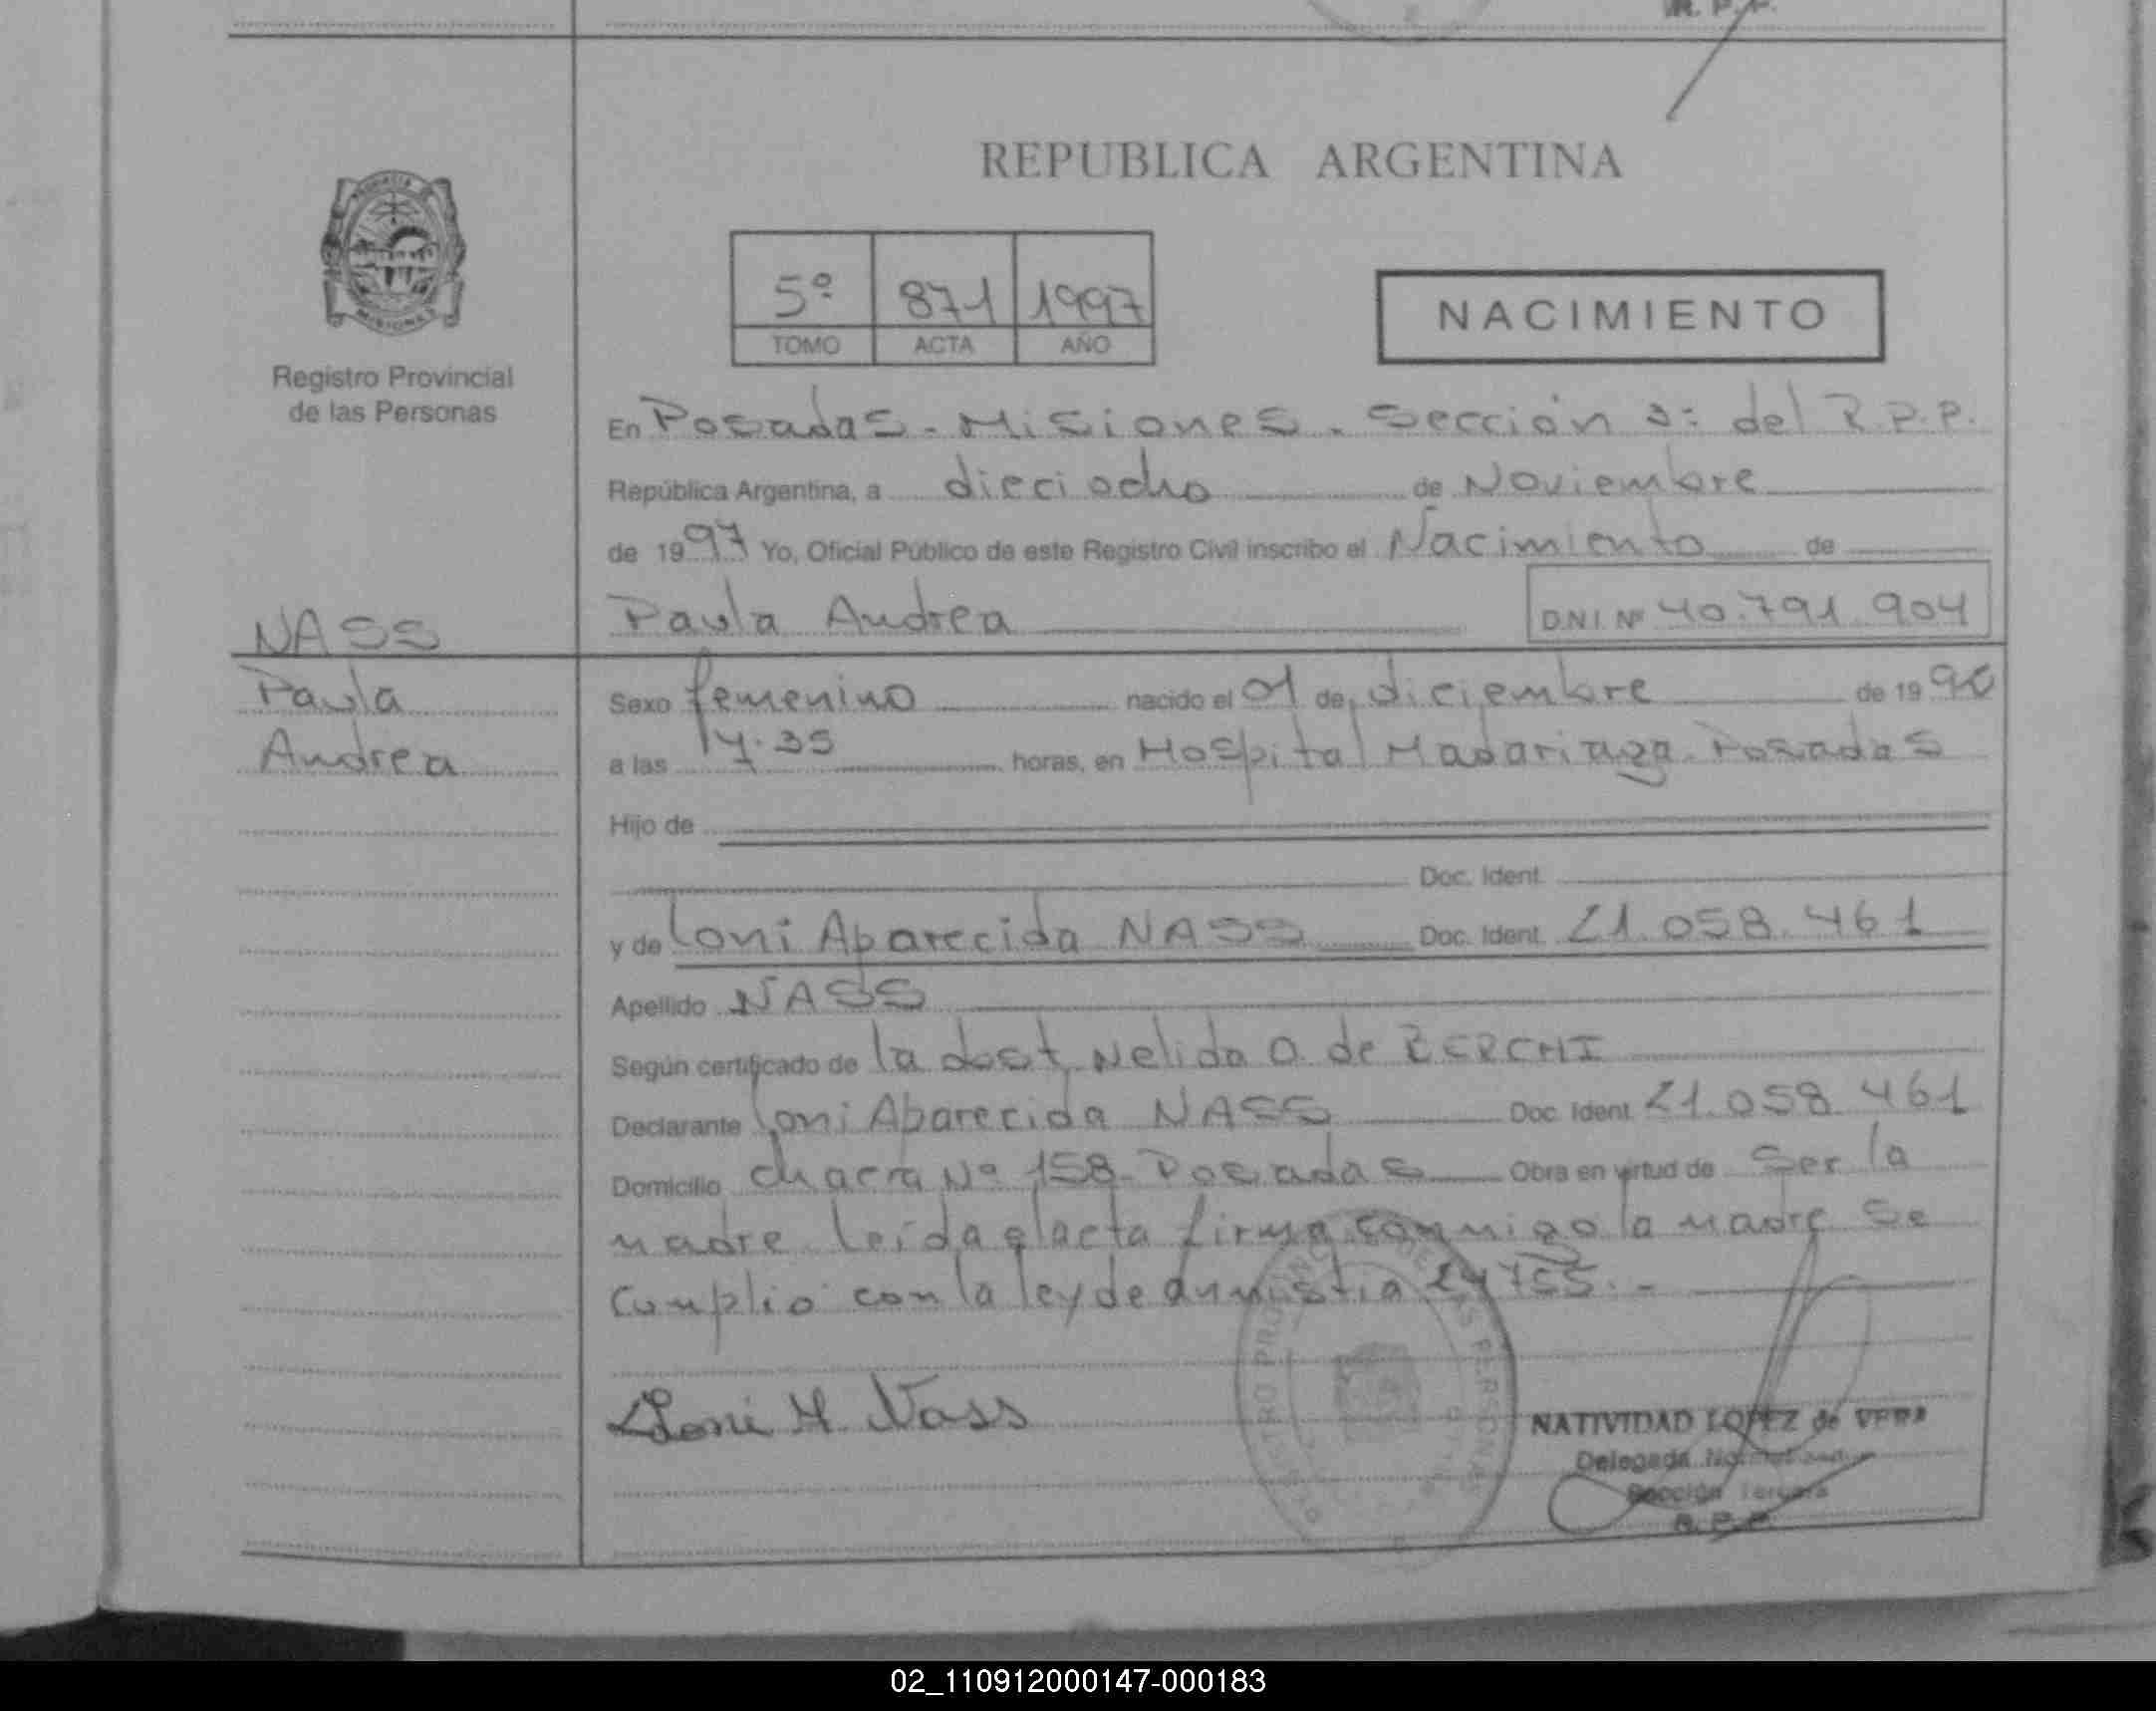 R. P. P.
REPUBLICA ARGENTINA
PROVINCIA DE
MISIONES
Registro Provincial
de las Personas
5º 871 1997
TOMO ACTA AÑO
NACIMIENTO
En Posadas - Misiones - Sección 3: del R.P.P.
República Argentina, a dieciocho de Noviembre
de 1997 Yo, Oficial Público de este Registro Civil inscribo el Nacimiento de
NASS
Paula
Andrea
Paula Andrea D.N.I. Nº 40.791.904
Sexo femenino nacido el 01 de diciembre de 19
a las 35 horas, en Hospital Madariaga - Posadas
Hijo de
Doc. Ident.
y de Loni Aparecida NASS Doc. Ident. 21.058.461
Apellido NASS
Según certificado de la dost Nelida O. de
Declarante Loni Aparecida NASS Doc. Ident. 21.058.461
Domicilio chacra Nº 158 - Posadas Obra en virtud de Ser la
madre. Leída el acta firma conmigo la madre Se
Cumplio con la ley de amnistia 24755. -
Loni M. Nass
NATIVIDAD LOPEZ de VERA
Delegada
Sección Tercera
R. P. P.
02_110912000147-000183